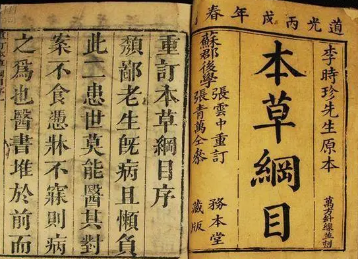 道光丙戌年春
李時珍先生原本
萬方針線並附
本草綱目
張雲中重訂
蘇郡後學
張青萬仝參
務本堂
藏版
重訂本草綱目序
頽鄙老生既病且懶負
此二患世莫能醫其對
案不食憑牀不寐則病
之爲也醫書堆於前而